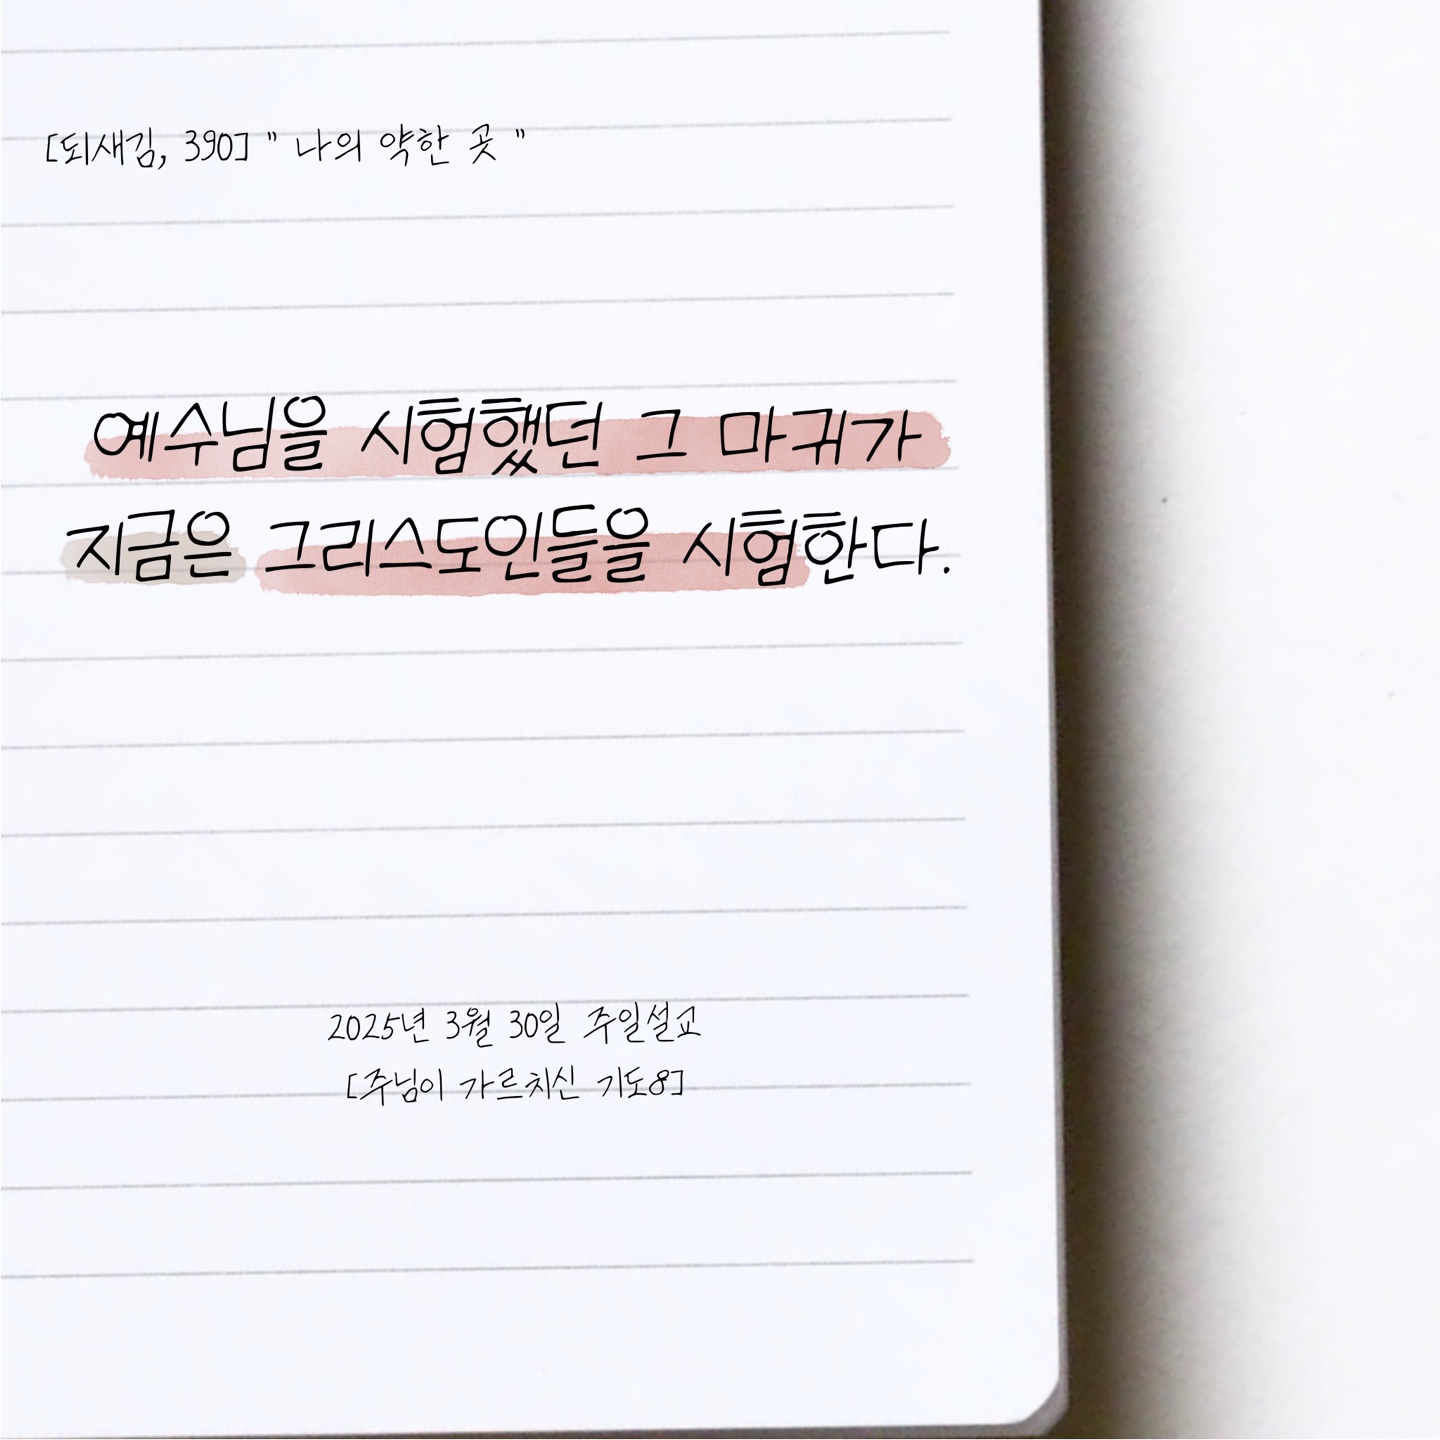 [되새김, 390] " 나의 약한 곳 "
예수님을 시험했던 그 마귀가
지금은 그리스도인들을 시험한다.
2025년 3월 30일 주일설교
[주님이 가르치신 기도8]